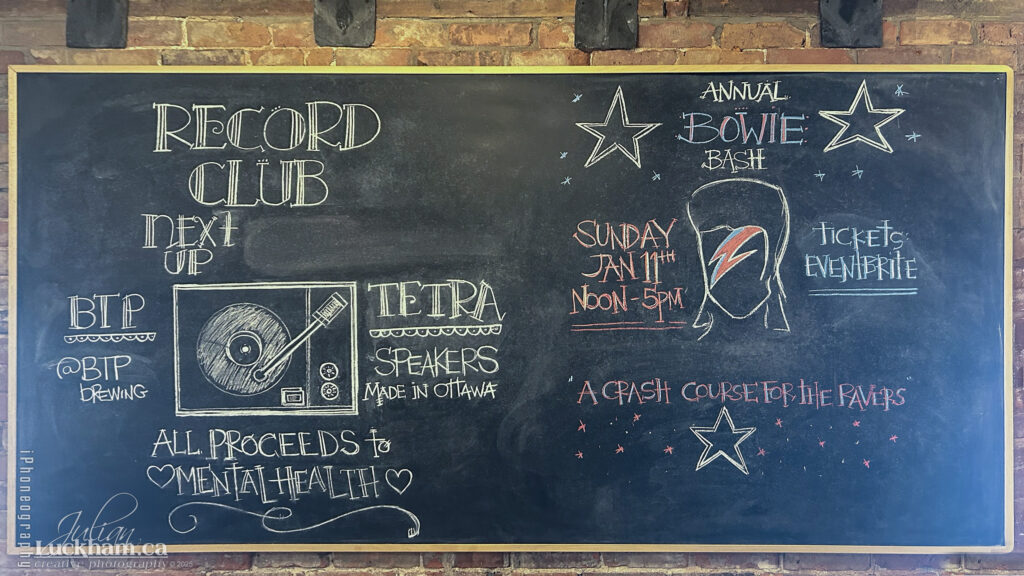 RECORD
CLUB
NEXT
UP
BTP
@BTP
BREWING
TETRA
SPEAKERS
MADE IN OTTAWA
ALL PROCEEDS to
MENTAL HEALTH
ANNUAL
BOWIE
BASH
SUNDAY
JAN 11TH
NOON - 5PM
TICKETS
EVENTBRITE
"A CRASH COURSE FOR THE RAVERS"
iPhoneography
Julian
Luckham.ca
creative photography ©2025